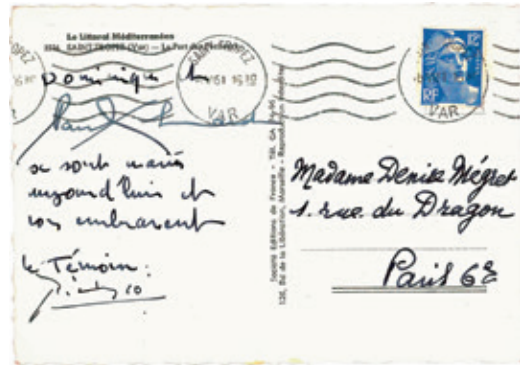 Le Littoral Méditerranéen
SAINT-TROPEZ (Var) — Le Port des Pêcheurs
Dominique &
Paul
se sont mariés
aujourd'hui et
vous embrassent
le Témoin :
Picasso
Société Editions de France - Tél. GA
Bd de la Libération, Marseille - Reproduction interdite
SAINT-TROPEZ
VAR
RF
Madame Denise Négret
1. rue du Dragon
Paris 6e